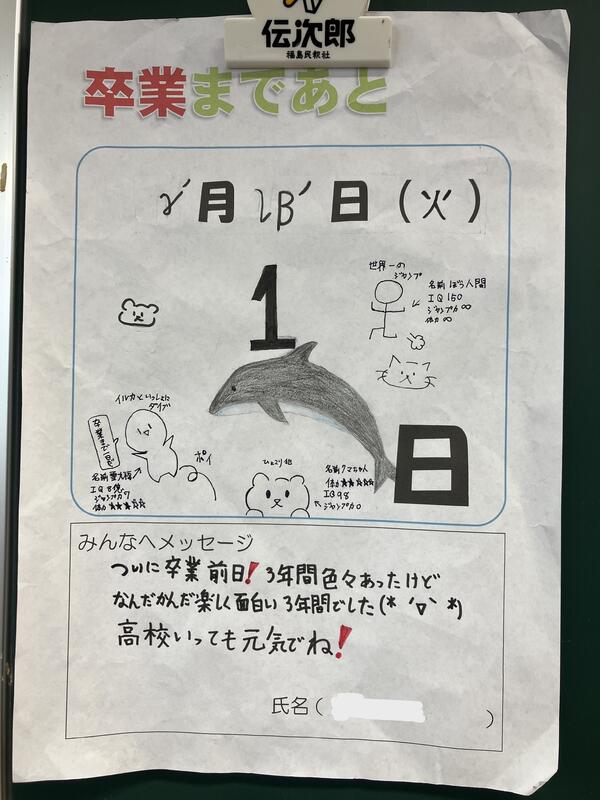 伝次郎
福島民報社
卒業まであと
月 日(火)
世界一の
ジャンプ
名前 ぼう人間
IQ 150
ジャンプ力 ∞
体力 ∞
1
イルカといっしょに
ダイブ
卒業まで一日だ
ポイ
IQ 8億
ジャンプ力 7
体力 ★★★☆☆
ひょっこり他
名前 クマちゃん
体力 ★★★☆☆
IQ 98
ジャンプ力 0
日
みんなへメッセージ
ついに卒業前日! 3年間色々あったけど
なんだかんだ楽しく面白い3年間でした(*´▽`*)
高校いっても元気でね!
氏名( )